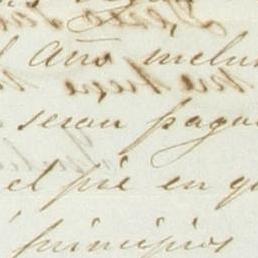 año inclu
seran paga
el pié en q
principios